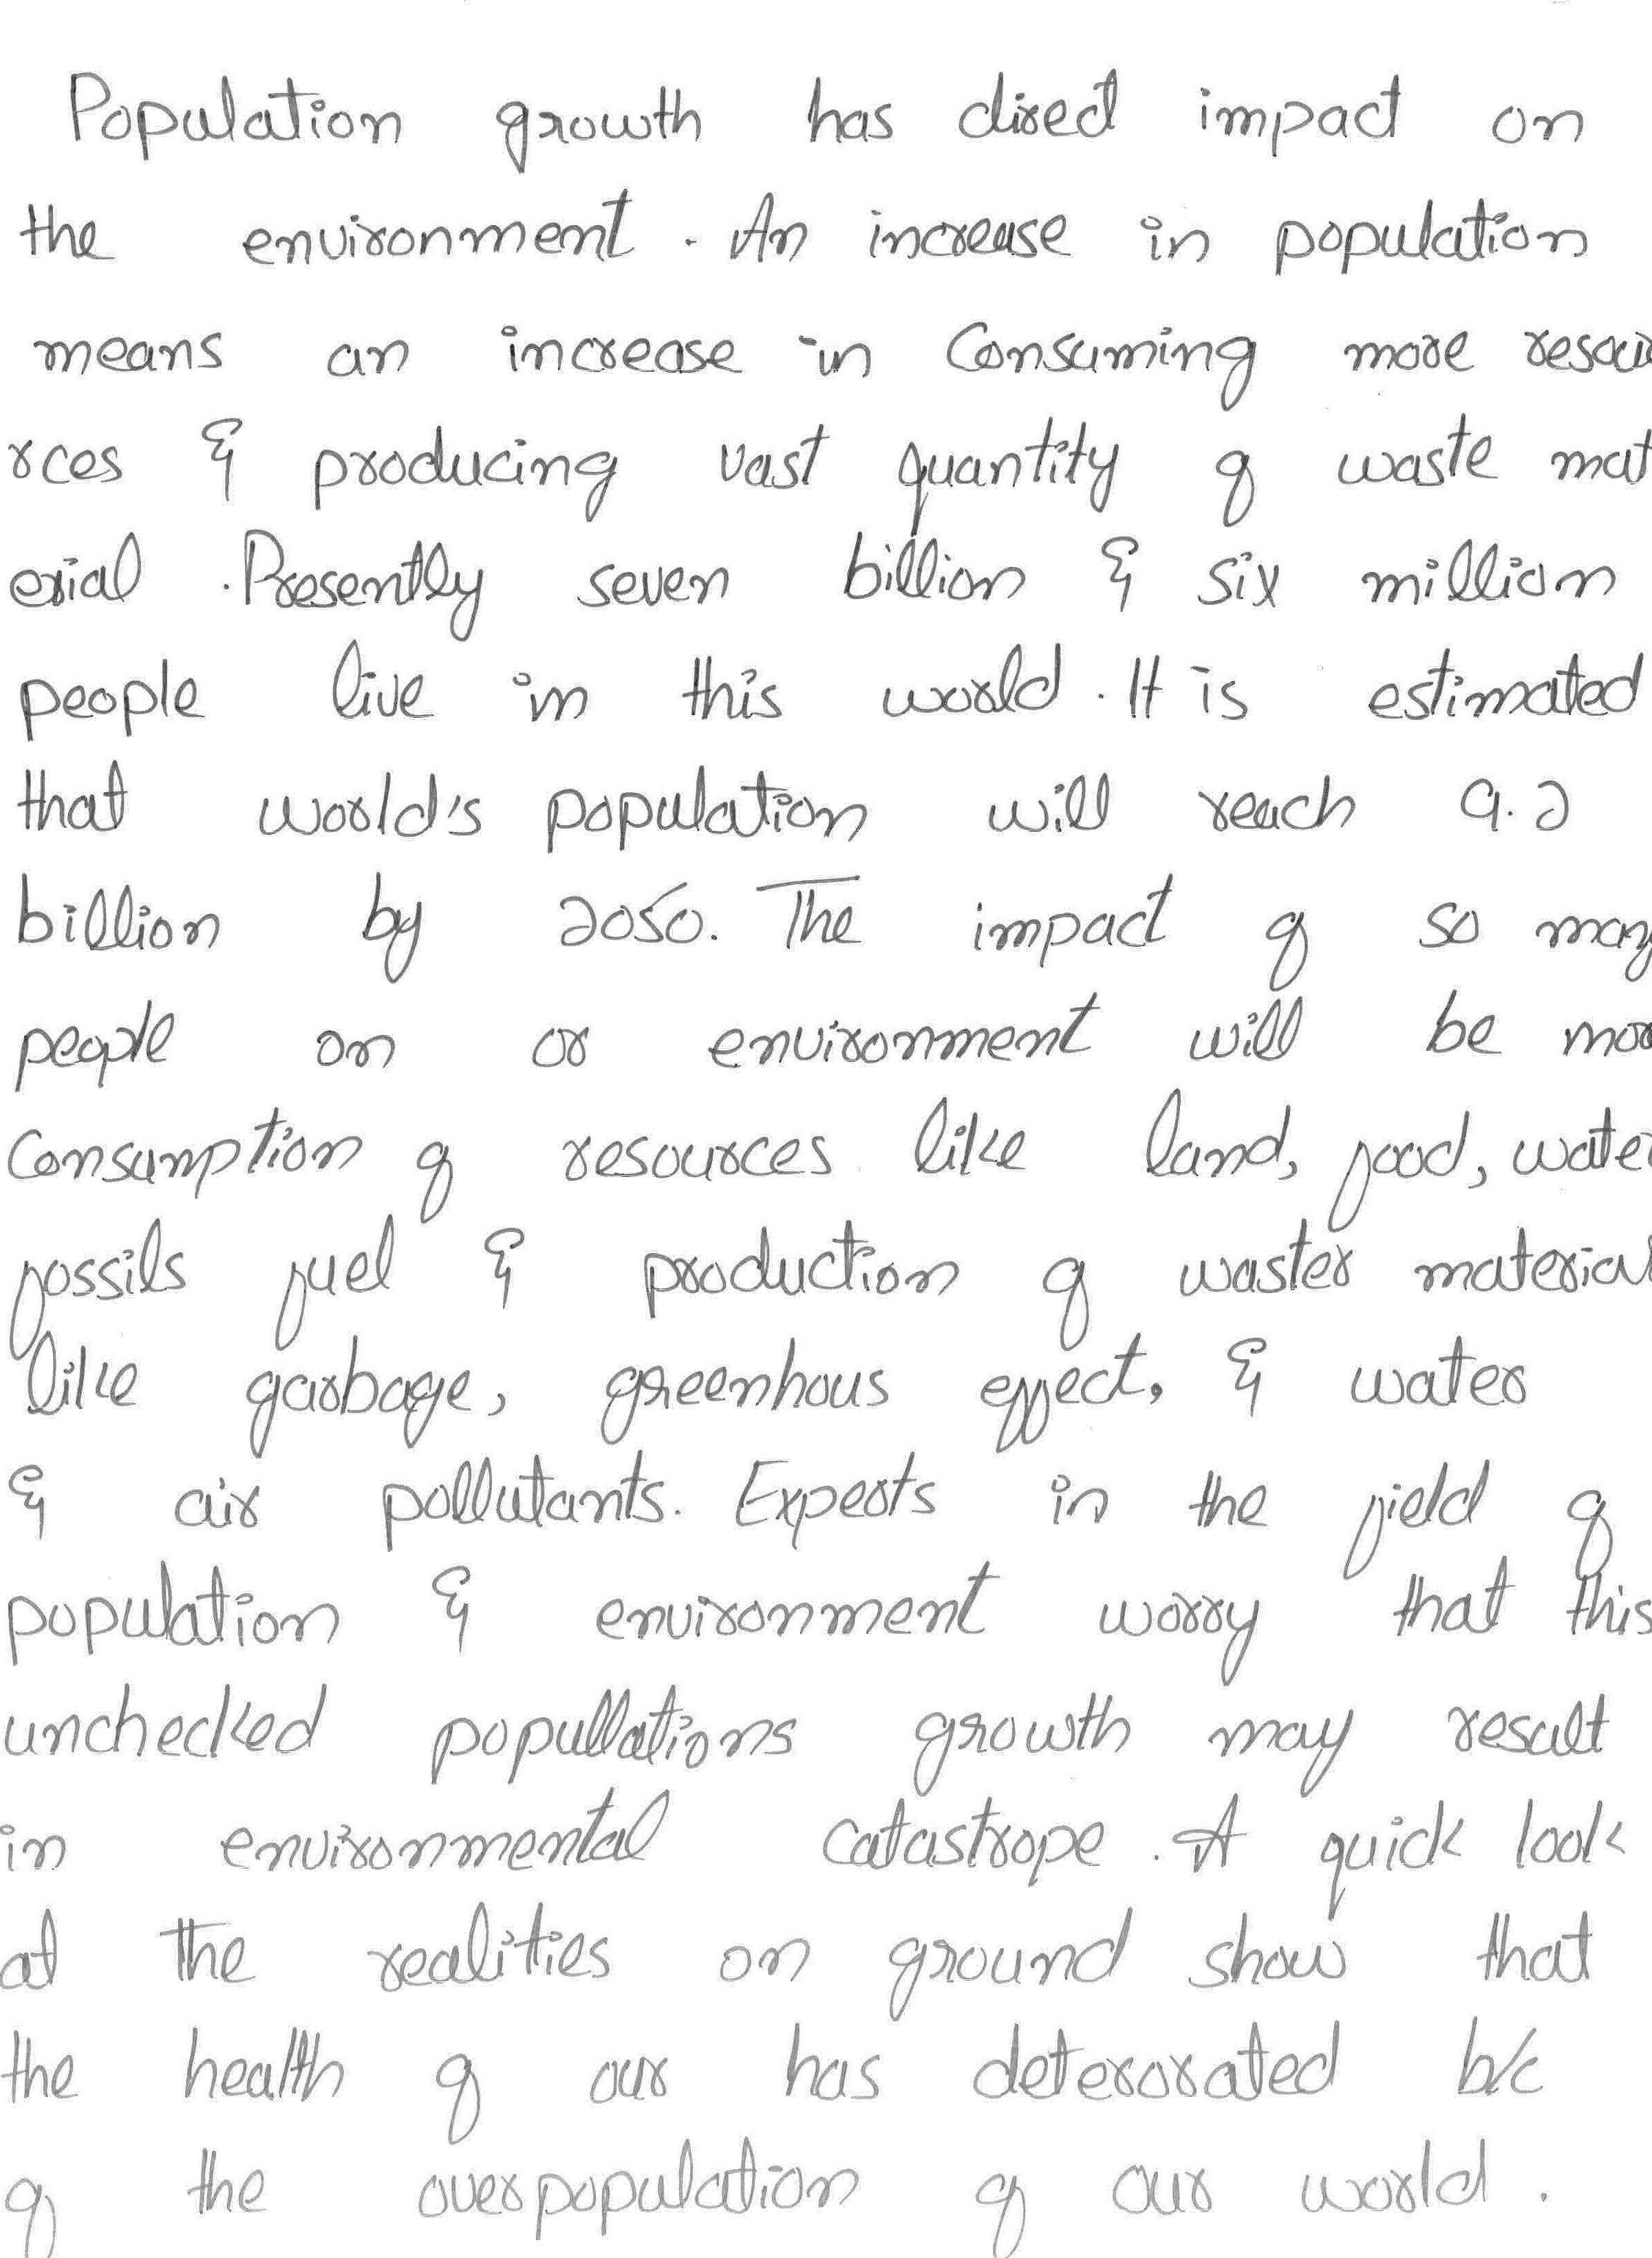 Population growth has direct impact on
the environment. An increase in population
means an increase in Consuming more resou
rces & producing vast quantity of waste mat
erial. Presently seven billion & six million
people live in this world. It is estimated
that world's population will reach 9.2
billion by 2050. The impact of so many
people on or environment will be more
Consumption of resources like land, food, water
fossils fuel & production of waster material
like garbage, greenhous effect, & water
& air pollutants. Experts in the field of
population & environment worry that this
unchecked popullations growth may result
in environmental catastrope. A quick look
at the realities on ground show that
the health of our has deterorated b/c
of the overpopulation of our world.